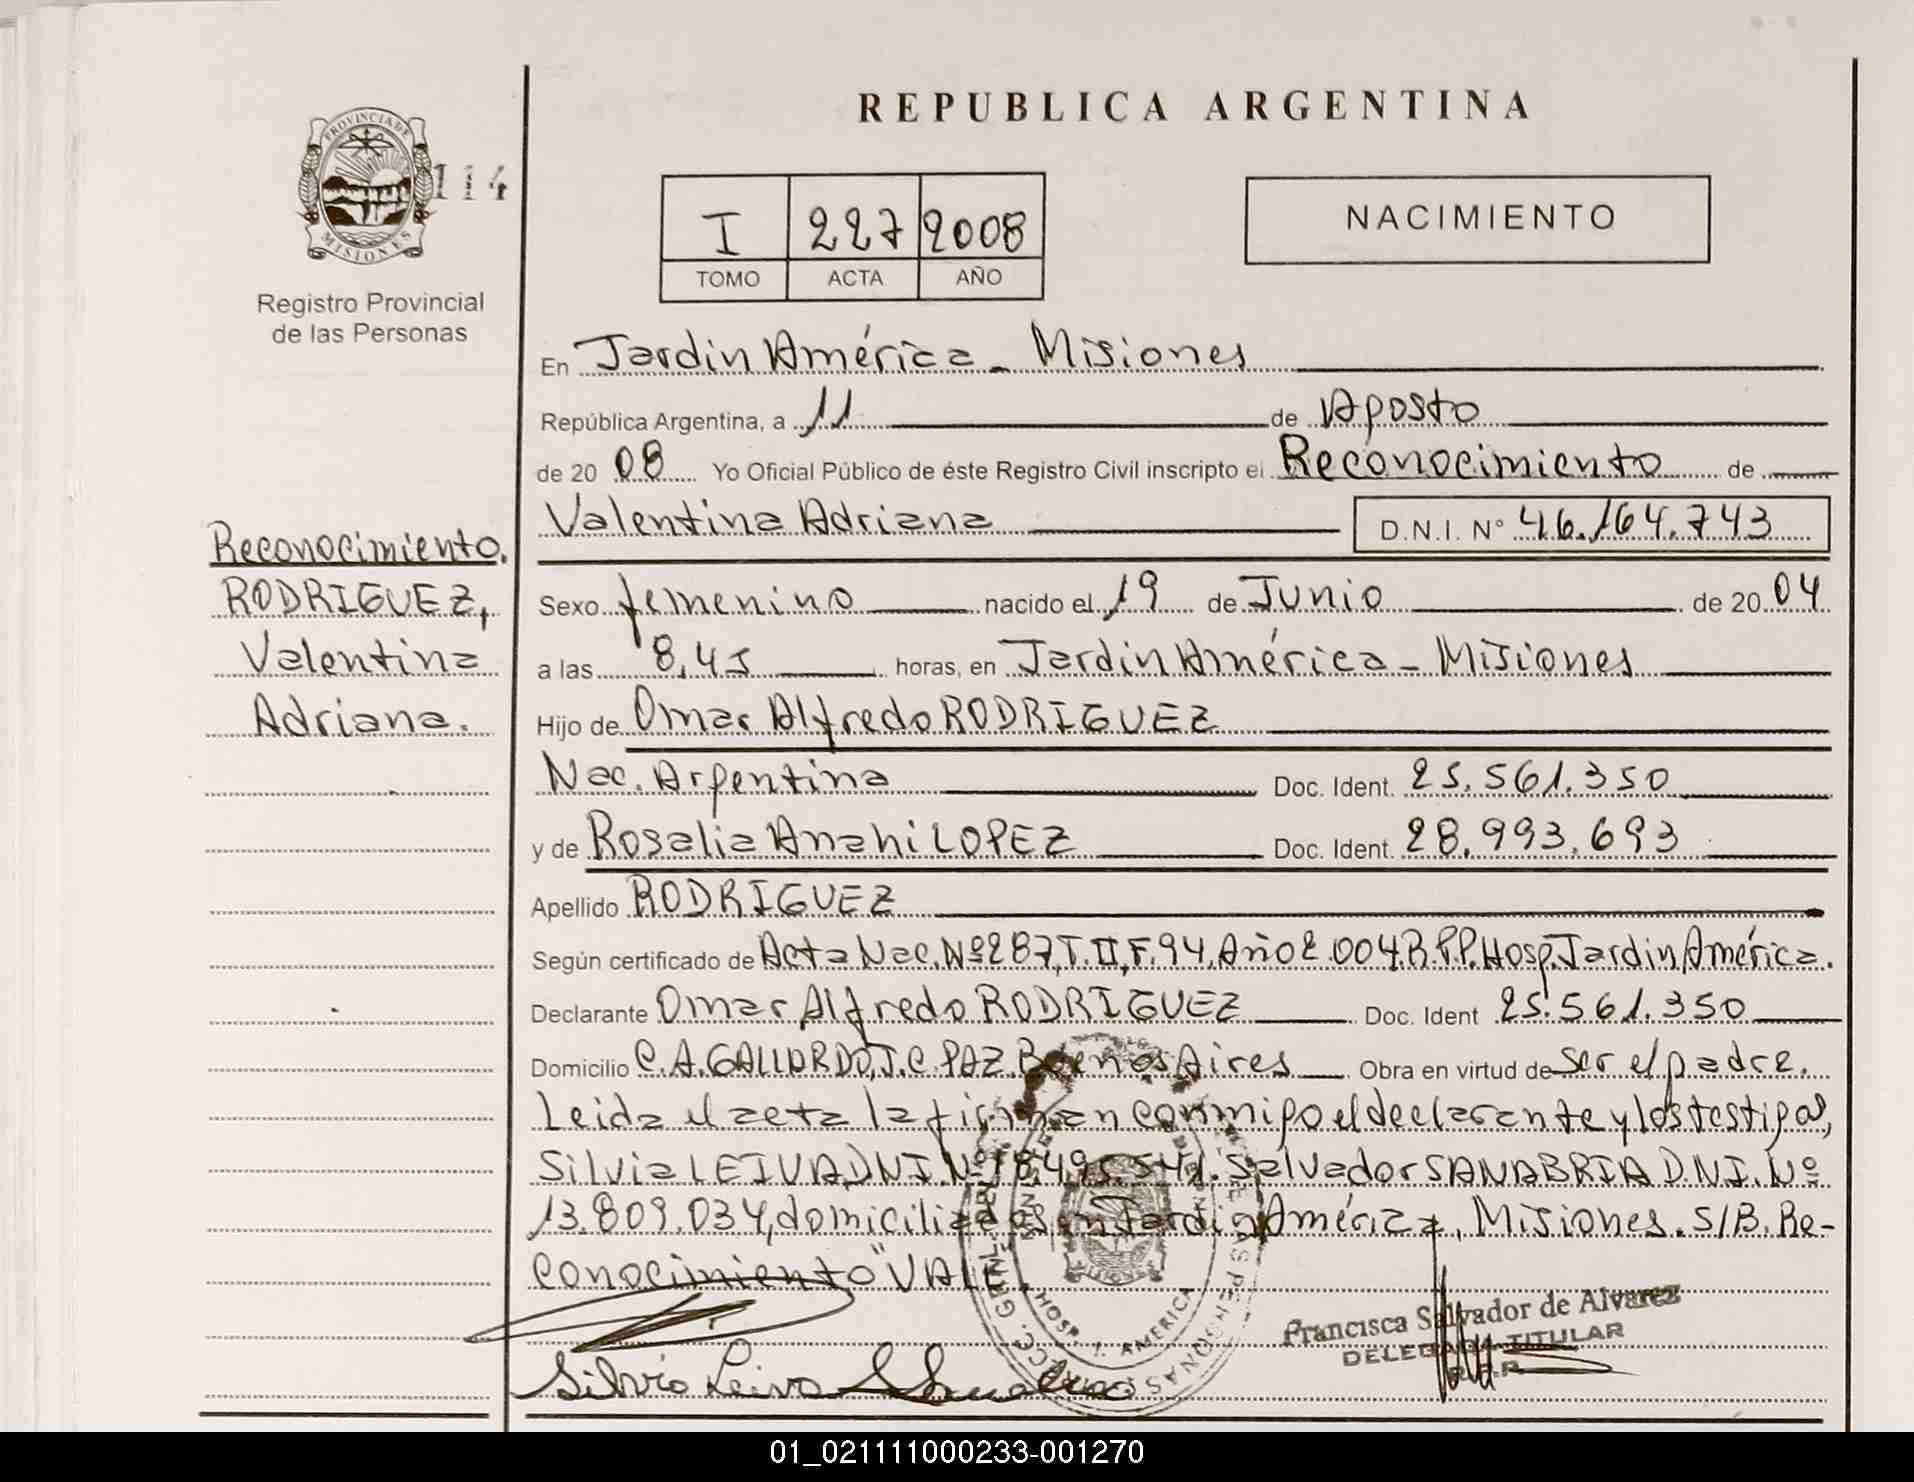 REPUBLICA ARGENTINA
PROVINCIA DE
MISIONES
114
Registro Provincial
de las Personas
I 227 2008
TOMO ACTA AÑO
NACIMIENTO
En Jardin América - Misiones
República Argentina, a 11 de Agosto
de 20 08 Yo Oficial Público de éste Registro Civil inscripto el Reconocimiento de
Valentina Adriana D.N.I. Nº 46.164.743
Reconocimiento.
RODRIGUEZ,
Valentina
Adriana.
Sexo femenino nacido el 19 de Junio de 20 04
a las 8,45 horas, en Jardin América - Misiones
Hijo de Omar Alfredo RODRIGUEZ
Nac. Argentina Doc. Ident. 25.561.350
y de Rosalia Anahi LOPEZ Doc. Ident. 28.993.693
Apellido RODRIGUEZ
Según certificado de Acta Nac. Nº 287, T. II, F. 94, Año 2.004 R.P.P. Hosp. Jardin América.
Declarante Omar Alfredo RODRIGUEZ Doc. Ident 25.561.350
Domicilio C.A. GALLARDO, J.C. PAZ. Buenos Aires Obra en virtud de ser el padre.
Leida el acta la firman conmigo el declarante y los testigos,
Silvia LEIVA DNI. Nº 18.495.541. Salvador SANABRIA D.N.I. Nº
13.809.034, domiciliados en Jardin América, Misiones. S/B. Re-
conocimiento "VALE
HOSP. J. AMERICA
Silvia Leiva
Francisca Salvador de Alvarez
DELEGADA TITULAR
R.P.P.
01_021111000233-001270